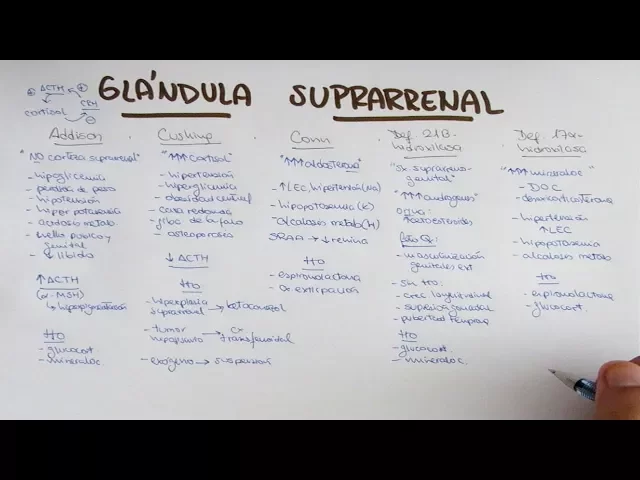 GLÁNDULA SUPRARRENAL
ACTH
CRH
cortisol
Addison
"NO corteza suprarrenal"
- hipoglicemia
- perdida de peso
- hipotensión
- hiperpotasemia
- acidosis metab
- vello pubico y
genital
- ↓ libido
↑ ACTH
(α-MSH)
↳ hiperpigmentación
tto
- glucocort
- mineraloc.
Cushing
"↑↑↑ cortisol"
- hipertensión
- hiperglicemia
- obesidad central
- cara redonda
- osteoporosis
↓ ACTH
tto
- hiperplasia
suprarrenal → ketoconazol
- tumor
hipofisiario → Cx
transfenoidal
- exogeno → suspension
Conn
"↑↑↑ aldosterona"
- ↑ LEC, hipertensión (Na)
- hipopotasemia (K)
- alcalosis metab (H)
SRAA → ↓ renina
tto
- espironolactona
- Cx extirpación
Def. 21β-
hidroxilasa
"Sx. suprarreno-
genital"
"↑↑↑ androgenos"
orina:
- masculinización
genitales ext
- sin tto:
- pubertad temprana
tto
- glucocort.
- mineraloc.
Def. 17α-
hidroxilasa
"↑↑↑ mineraloc"
- DOC
- hipertensión
↑ LEC
- hipopotasemia
- alcalosis metab
tto
- espironolactona
- glucocort